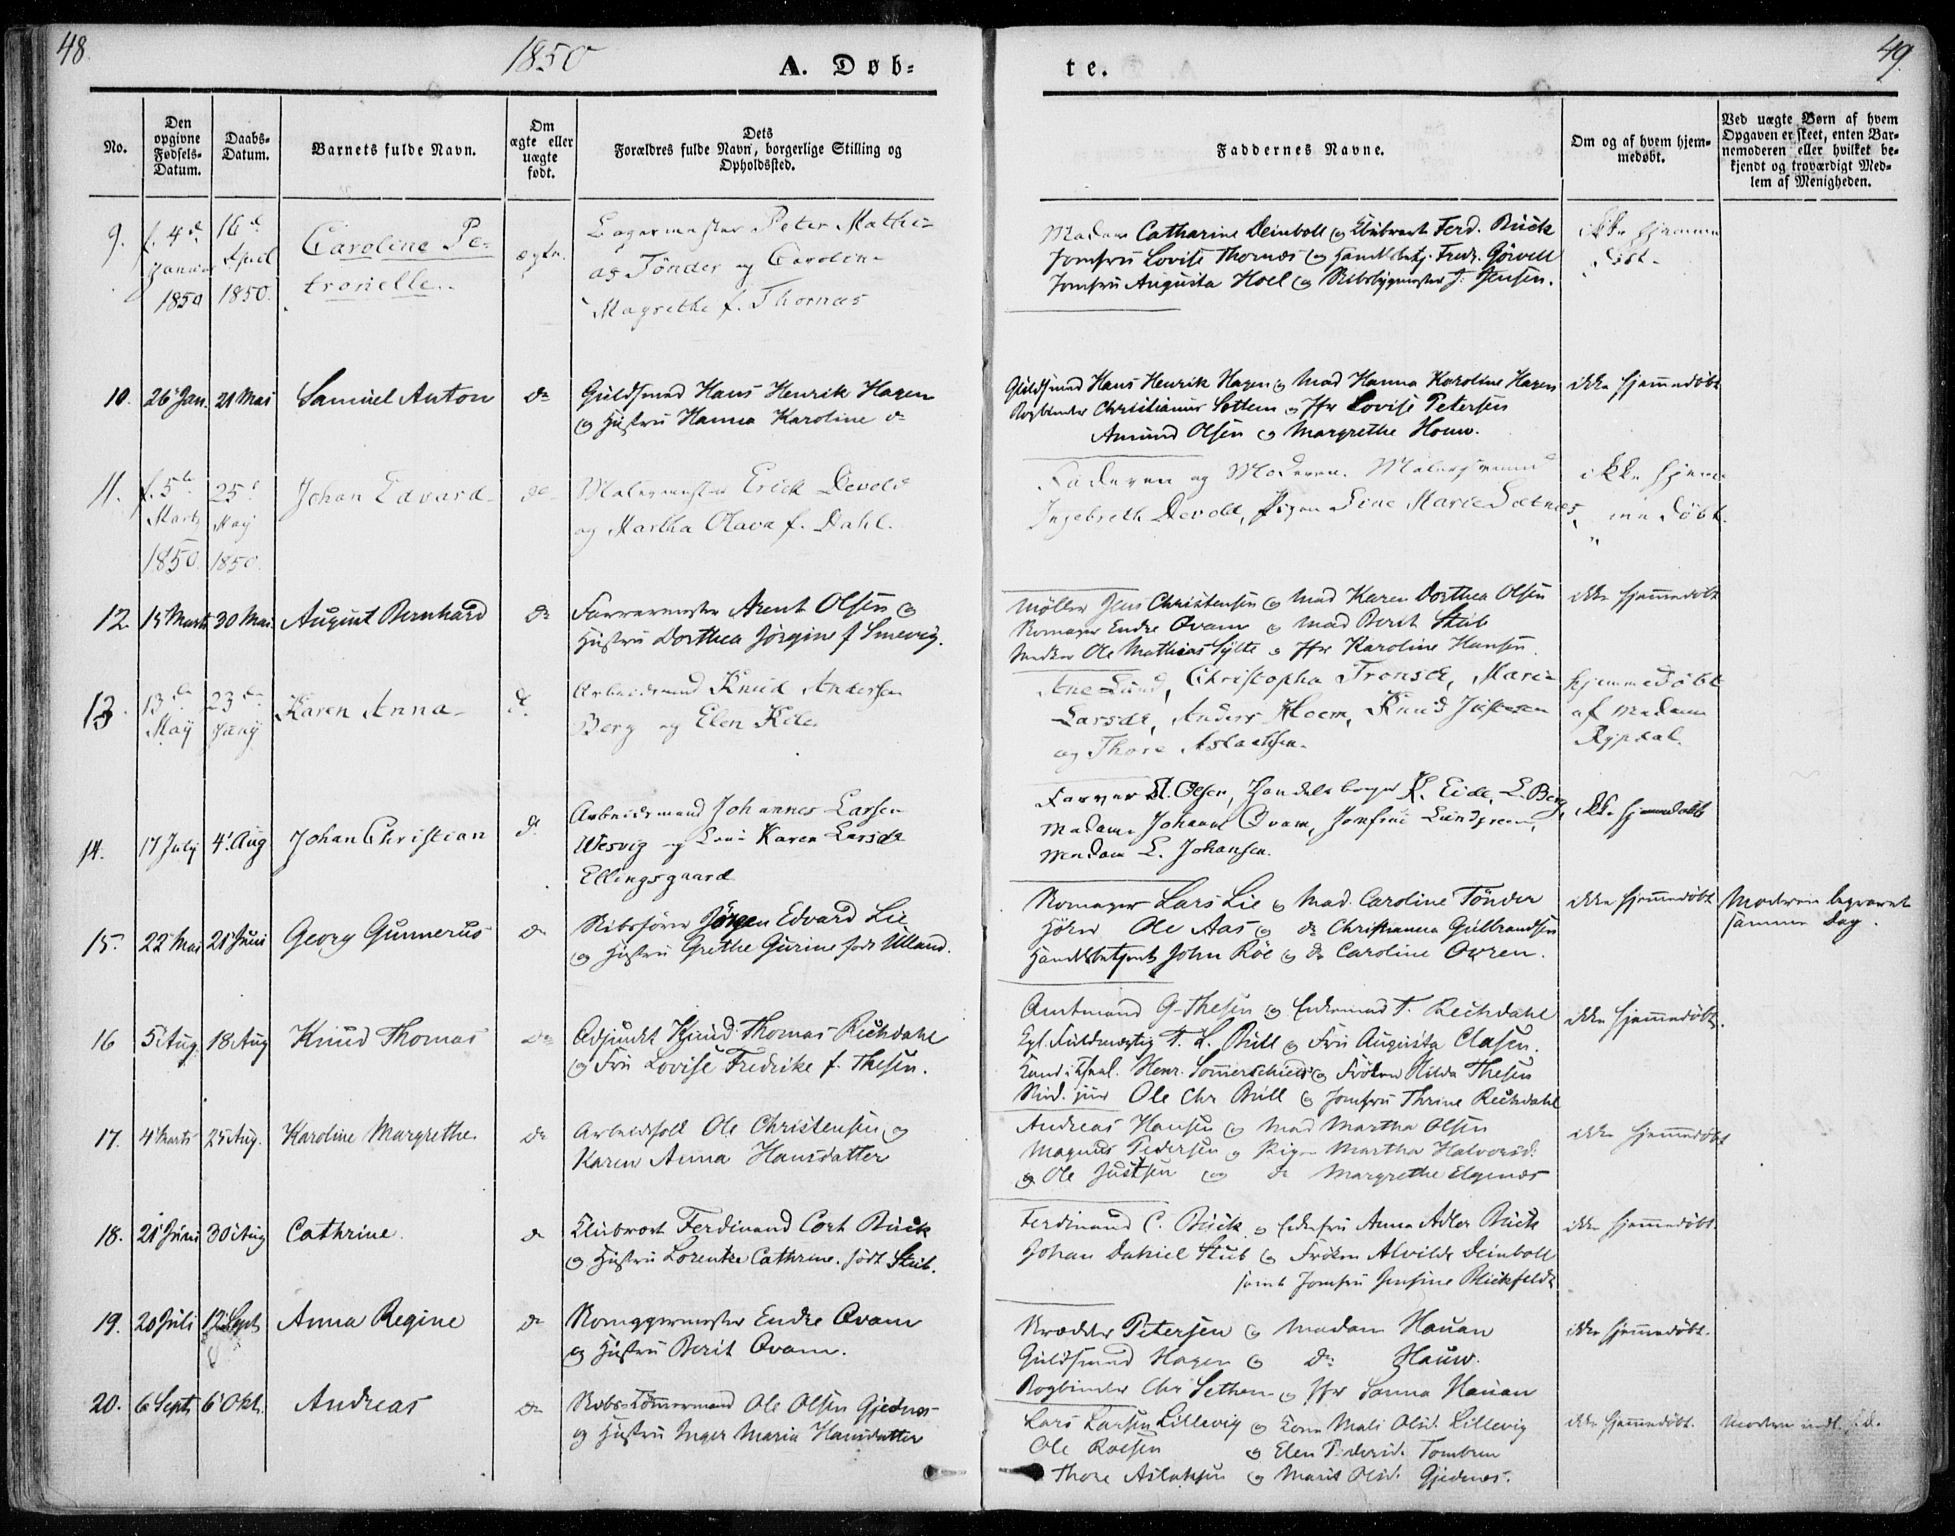 48.
1850
A. Døb-
te.
49.
No.
Den
opgivne
Fødsels-
Datum.
Daabs-
Datum.
Barnets fulde Navn.
Om
ægte eller
uægte
født.
Dets
Forældres fulde Navn, borgerlige Stilling og
Opholdssted.
Faddernes Navne.
Om og af hvem hjem-
medøbt.
Ved uægte Børn af hvem
Opgaven er skeet, enten Bar-
nemoderen eller hvilket be-
kjendt og troværdigt Med-
lem af Menigheden.
9.
f. 4de
Januar
1850
16de
April
1850.
Caroline Pe-
tronelle.
ægte.
Peter Mathi-
as Tønder og Caroline
Magrethe f. Thornæs
Madam Catharine Deinboll og Klubvært Ferd. Bück
Jomfru Lovise Thornæs og Handelsbetj. Fredr. Görvell
Jomfru Augusta Hoel og Skibsbygmester J. Jensen.
ikke hjemme
døbt.
10.
26 Jan.
21 Mai
Samuel Anton
do
Guldsmed Hans Henrik Hagen
og Hustru Hanna Karoline do
Guldsmed Hans Henrik Hagen og Mad Hanna Karoline Hagen
Bogbinder Christianus Settem og Jfr Lovise Petersen
Amund Olsen og Margrethe Houw.
ikke hjemmedøbt
11.
f. 5te
Marts
1850.
25de
May
1850.
Johan Edvard
do
Malermester Erick Devold
og Martha Olava f. Dahl.
Faderen og Moderen. Malersvend
Ingebreth Devold, Pigen Line Marie Sætnes
ikke hjem-
medøbt.
12.
15 Marts
30 Mai
August Bernhard
do
Farvermester Arent Olsen og
Hustru Dorthea Jørgine f Smevig.
Møller Jens Christensen og Mad Karen Dorthea Olsen
Romager Endre Qvam og Mad Berit Stub
Snedker Ole Mathias Sylte og Jfr Karoline Hansen
ikke hjemmedøbt
13.
13de
May
23de
Juny
Karen Anna
d.
Arbeidsmand Knud Andersen
Berg og Elen
Ane Lund, Christopha Tronsdr, Marie
Larsdr, Anders Hoem, Knud Justesen
og Thore Aslachsen.
hjemmedøbt
af Madam
Rypdal.
14.
17 July
4. Aug
Johan Christian
d.
Arbeidsmand Johannes Larsen
Wesvig og Karen Larsdr
Ellingsgaard
Farver A. Olsen, Handelsborger K. Eide, L. Berg,
Madame Johanne Qvam, Jomfrue Lundgreen,
Madam L. Johansen.
ikke hjemmedøbt
15.
22 Mai
21 Juni
Georg Gunnerus
do
Skibsfører Jørgen Edvard Lie
og Hustru Grethe Gurine født Ulland.
Romager Lars Lie og Mad. Caroline Tönder
Ole Aas og do Christianna Gulbrandsen
Handelsbetjent John Röe og do Caroline Owren.
ikke hjemmedøbt
Moderen begravet
samme Dag.
16
5 Aug.
18 Aug
Knud Thomas
do
Adjunct Knud Thomas Richdahl
og Fru Lovise Fredrike f. Thesen.
Amtmand G. Thesen og Enkemad T. Richdahl
Kgl. Fuldmægtig T. L. Bull og Fru Augusta Clasen.
Henr. Sommerschield og Frøken Hilda Thesen
Stud. jur Ole Chr Bull og Jomfru Thrine Richdahl
ikke hjemmedøbt.
17.
4 Marts
25 Aug.
Karoline Margrethe
do
Arbeidsfolk Ole Christensen og
Karen Anna Hansdatter
Andreas Hansen og Mad Martha Olsen
Magnus Pedersen og Pigen Martha Halvorsd.
og Ole Justsen og do Margrethe Elgenæs
ikke hjemmedøbt
18.
21 Juni
30 Aug
Cathrine.
do
Klubvært Ferdinand Cort Bück
og Hustru Lorentze Cathrine, født Stub.
Ferdinand C. Bück og Enkefru Anna Adler Bück
Johan Daniel Stub og Frøken Alvilde Deinboll
samt Jomfru Gunsine Blickfeldt
ikke hjemmedøbt.
19.
20 Juli
12 Sept
Anna Regine
do
Romagermester Endre Qvam
og Hustru Berit Qvam.
Skrædder Petersen og Madam Hauan
Guldsmed Hagen og do Hauw.
Bogbinder Chr Sethem og Jfr Sanna Hauan
ikke hjemmedøbt.
20.
6 Sept
6 Okt.
Andreas
do
Skibs-Tømmermand Ole Olsen Gjednes
og Hustru Inger Maria Hansdatter
Lars Larsen Lillevig og Kone Mali Olsd. Lillevig
Ole Roesen og Elen Pedersd. Tombren
Thore Aslaksen og Marit Olsd. Gjednes.
ikke hjemmedøbt.
Moderen